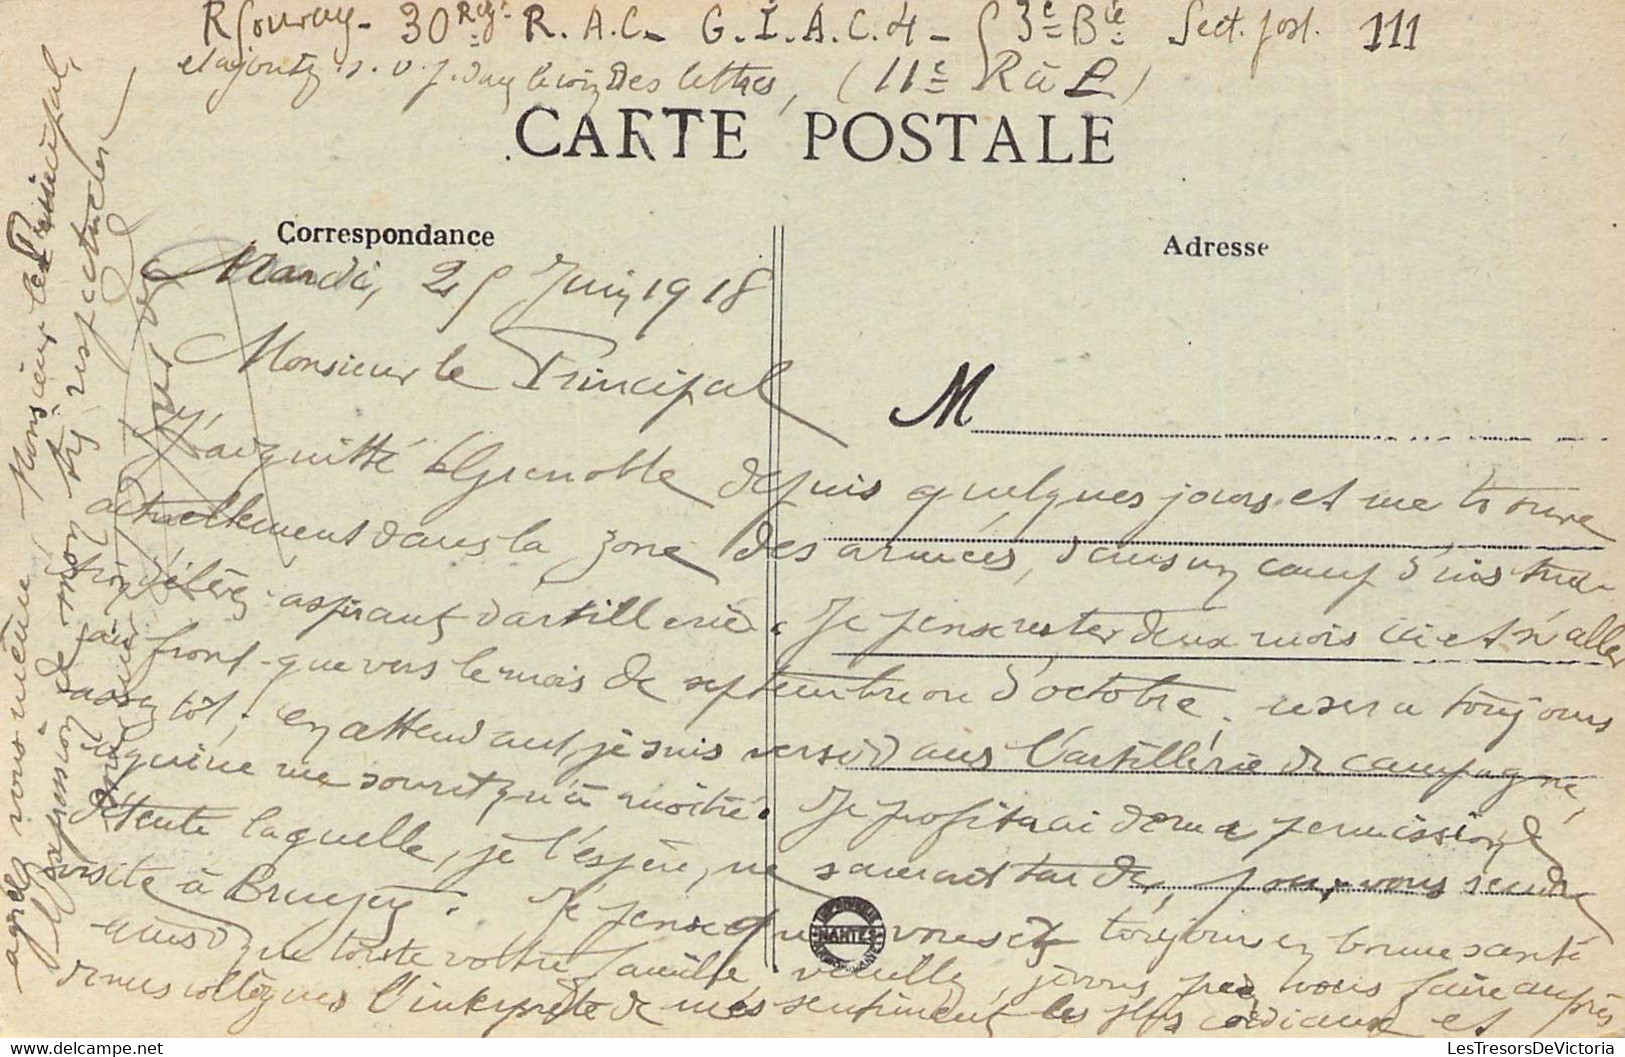 30 Reg. R.A.C. - G.I.A.C.4 - 3e Bie Sect. post. 111
et ajoutez s.v.p. dans le coin des lettres, (11e R à P)
CARTE POSTALE
Correspondance
Adresse
Mardi, 25 Juin 1918
Monsieur le Principal
M
J'ai quitté Grenoble depuis quelques jours et me trouve
actuellement dans la zone des armées, dans un camp d'instruc-
tion d'élèves-aspirants d'artillerie. Je pense rester deux mois ici et n'aller
au front que vers le mois de septembre ou d'octobre, ce sera toujours
assez tôt; en attendant, je suis versé dans l'artillerie de campagne,
ce qui ne me sourit qu'à moitié. Je profiterai de ma permission de
détente laquelle, je l'espère, ne saurait tarder, pour vous rendre
visite à . Je pense que vous êtes toujours en bonne santé
ainsi que toute votre famille. Veuillez, je vous prie, vous faire auprès
de mes collègues l'interprète de mes sentiments les plus cordiaux et
agréez vous même, Monsieur le Principal,
l'expression de mon très respectueux
NANTES
LesTresorsDeVictoria